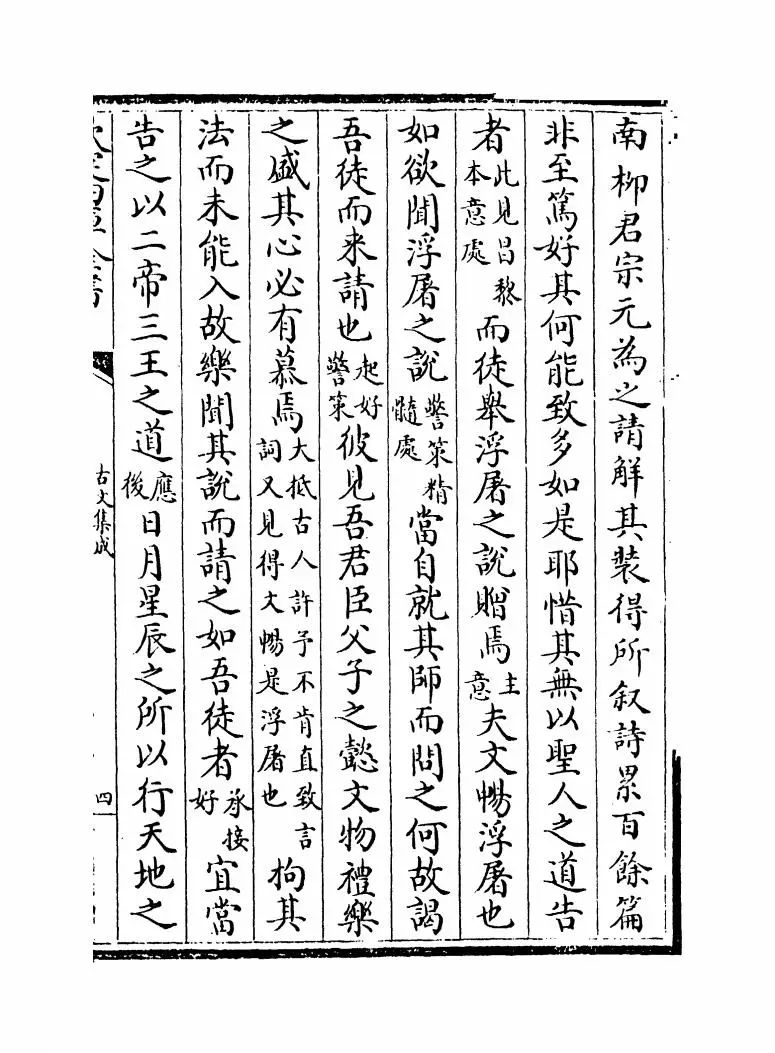 南柳君宗元為之請解其裝得所叙詩累百餘篇
非至篤好其何能致多如是耶惜其無以聖人之道告
者此見昌黎本意處而徒舉浮屠之說贈焉主意夫文暢浮屠也
如欲聞浮屠之說警策精髓處當自就其師而問之何故謁
吾徒而来請也起好警策彼見吾君臣父子之懿文物禮樂
之盛其心必有慕焉大抵古人許予不肯直致言詞又見得文暢是浮屠也拘其
法而未能入故樂聞其說而請之如吾徒者承接好宜當
告之以二帝三王之道應後日月星辰之所以行天地之
欽定四庫全書
古文集成
四